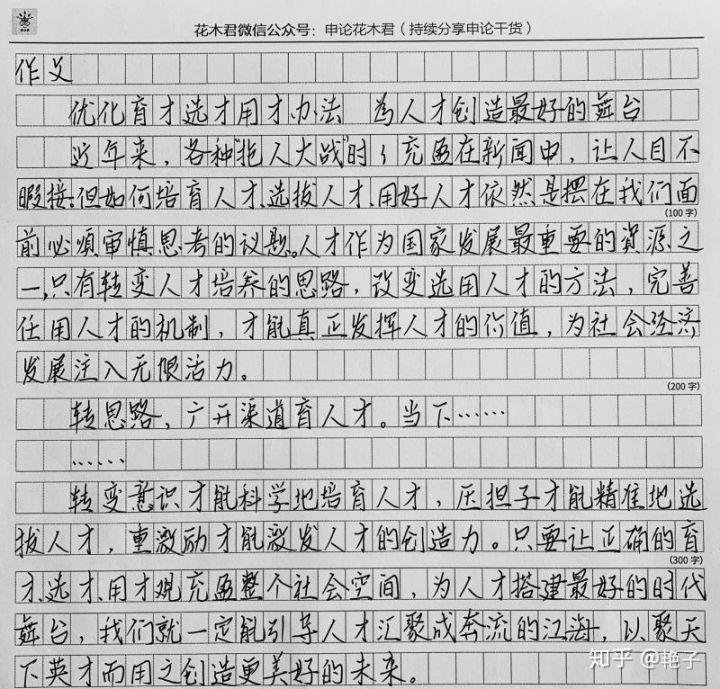 花木君微信公众号：申论花木君（持续分享申论干货）
作文
优化育才选才用才办法　为人才创造最好的舞台
近年来，各种"抢人大战"时时充盈在新闻中，让人目不
暇接。但如何培育人才、选拔人才、用好人才依然是摆在我们面
(100 字)
前必须审慎思考的议题。人才作为国家发展最重要的资源之
一，只有转变人才培养的思路，改变选用人才的方法，完善
任用人才的机制，才能真正发挥人才的价值，为社会经济
发展注入无限活力。
(200 字)
转思路，广开渠道育人才。当下……
……
转变意识才能科学地培育人才，压担子才能精准地选
拔人才，重激励才能激发人才的创造力。只要让正确的育
(300 字)
才、选才、用才观充盈整个社会空间，为人才搭建最好的时代
舞台，我们就一定能引导人才汇聚成奔流的江海，以聚天
下英才而用之创造更美好的未来。
知乎 @艳子